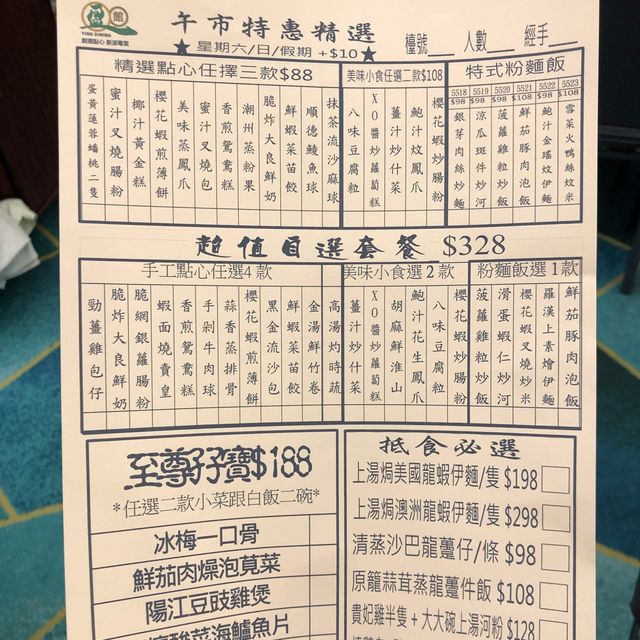 館
YING DINING
創意點心 新派粵菜
午市特惠精選
★星期六/日/假期 +$10★
檯號 人數 經手
精選點心任擇三款$88
蛋黃蓮蓉蟠桃二隻
蜜汁叉燒腸粉
椰汁黃金糕
櫻花蝦煎薄餅
美味蒸鳳爪
蜜汁叉燒包
香煎鴛鴦糕
潮州蒸粉果
脆炸大良鮮奶
鮮蝦菜苗餃
順德鯪魚球
抹茶流沙麻球
美味小食任選二款$108
八味豆腐粒
XO醬炒蘿蔔糕
薑汁炒什菜
鮑汁炆鳳爪
櫻花蝦炒腸粉
特式粉麵飯
5518 5519 5520 5521 5522 5523
$98 $98 $98 $108 $98 $108
銀芽肉絲炒麵
涼瓜斑件炒河
菠蘿雞粒炒飯
鮮茄豚肉泡飯
鮑汁金瑤炆伊麵
雪菜火鴨絲炆米
超值自選套餐 $328
手工點心任選4款
勁薑雞包仔
脆炸大良鮮奶
脆網銀蘿腸粉
蝦面燒賣皇
香煎鴛鴦糕
手剁牛肉球
蒜香蒸排骨
櫻花蝦煎薄餅
黑金流沙包
鮮蝦菜苗餃
金湯鮮竹卷
高湯灼時蔬
美味小食選2款
薑汁炒什菜
XO醬炒蘿蔔糕
胡麻鮮淮山
鮑汁花生鳳爪
八味豆腐粒
櫻花蝦炒腸粉
粉麵飯選1款
菠蘿雞粒炒飯
滑蛋蝦仁炒河
櫻花蝦叉燒炒米
羅漢上素燴伊麵
鮮茄豚肉泡飯
至尊孖寶$188
*任選二款小菜跟白飯二碗*
冰梅一口骨
鮮茄肉燥泡莧菜
陽江豆豉雞煲
酸菜海鱸魚片
抵食必選
上湯焗美國龍蝦伊麵/隻 $198
上湯焗澳洲龍蝦伊麵/隻 $298
清蒸沙巴龍躉仔/條 $98
原籠蒜茸蒸龍躉件飯 $108
貴妃雞半隻 + 大大碗上湯河粉 $128